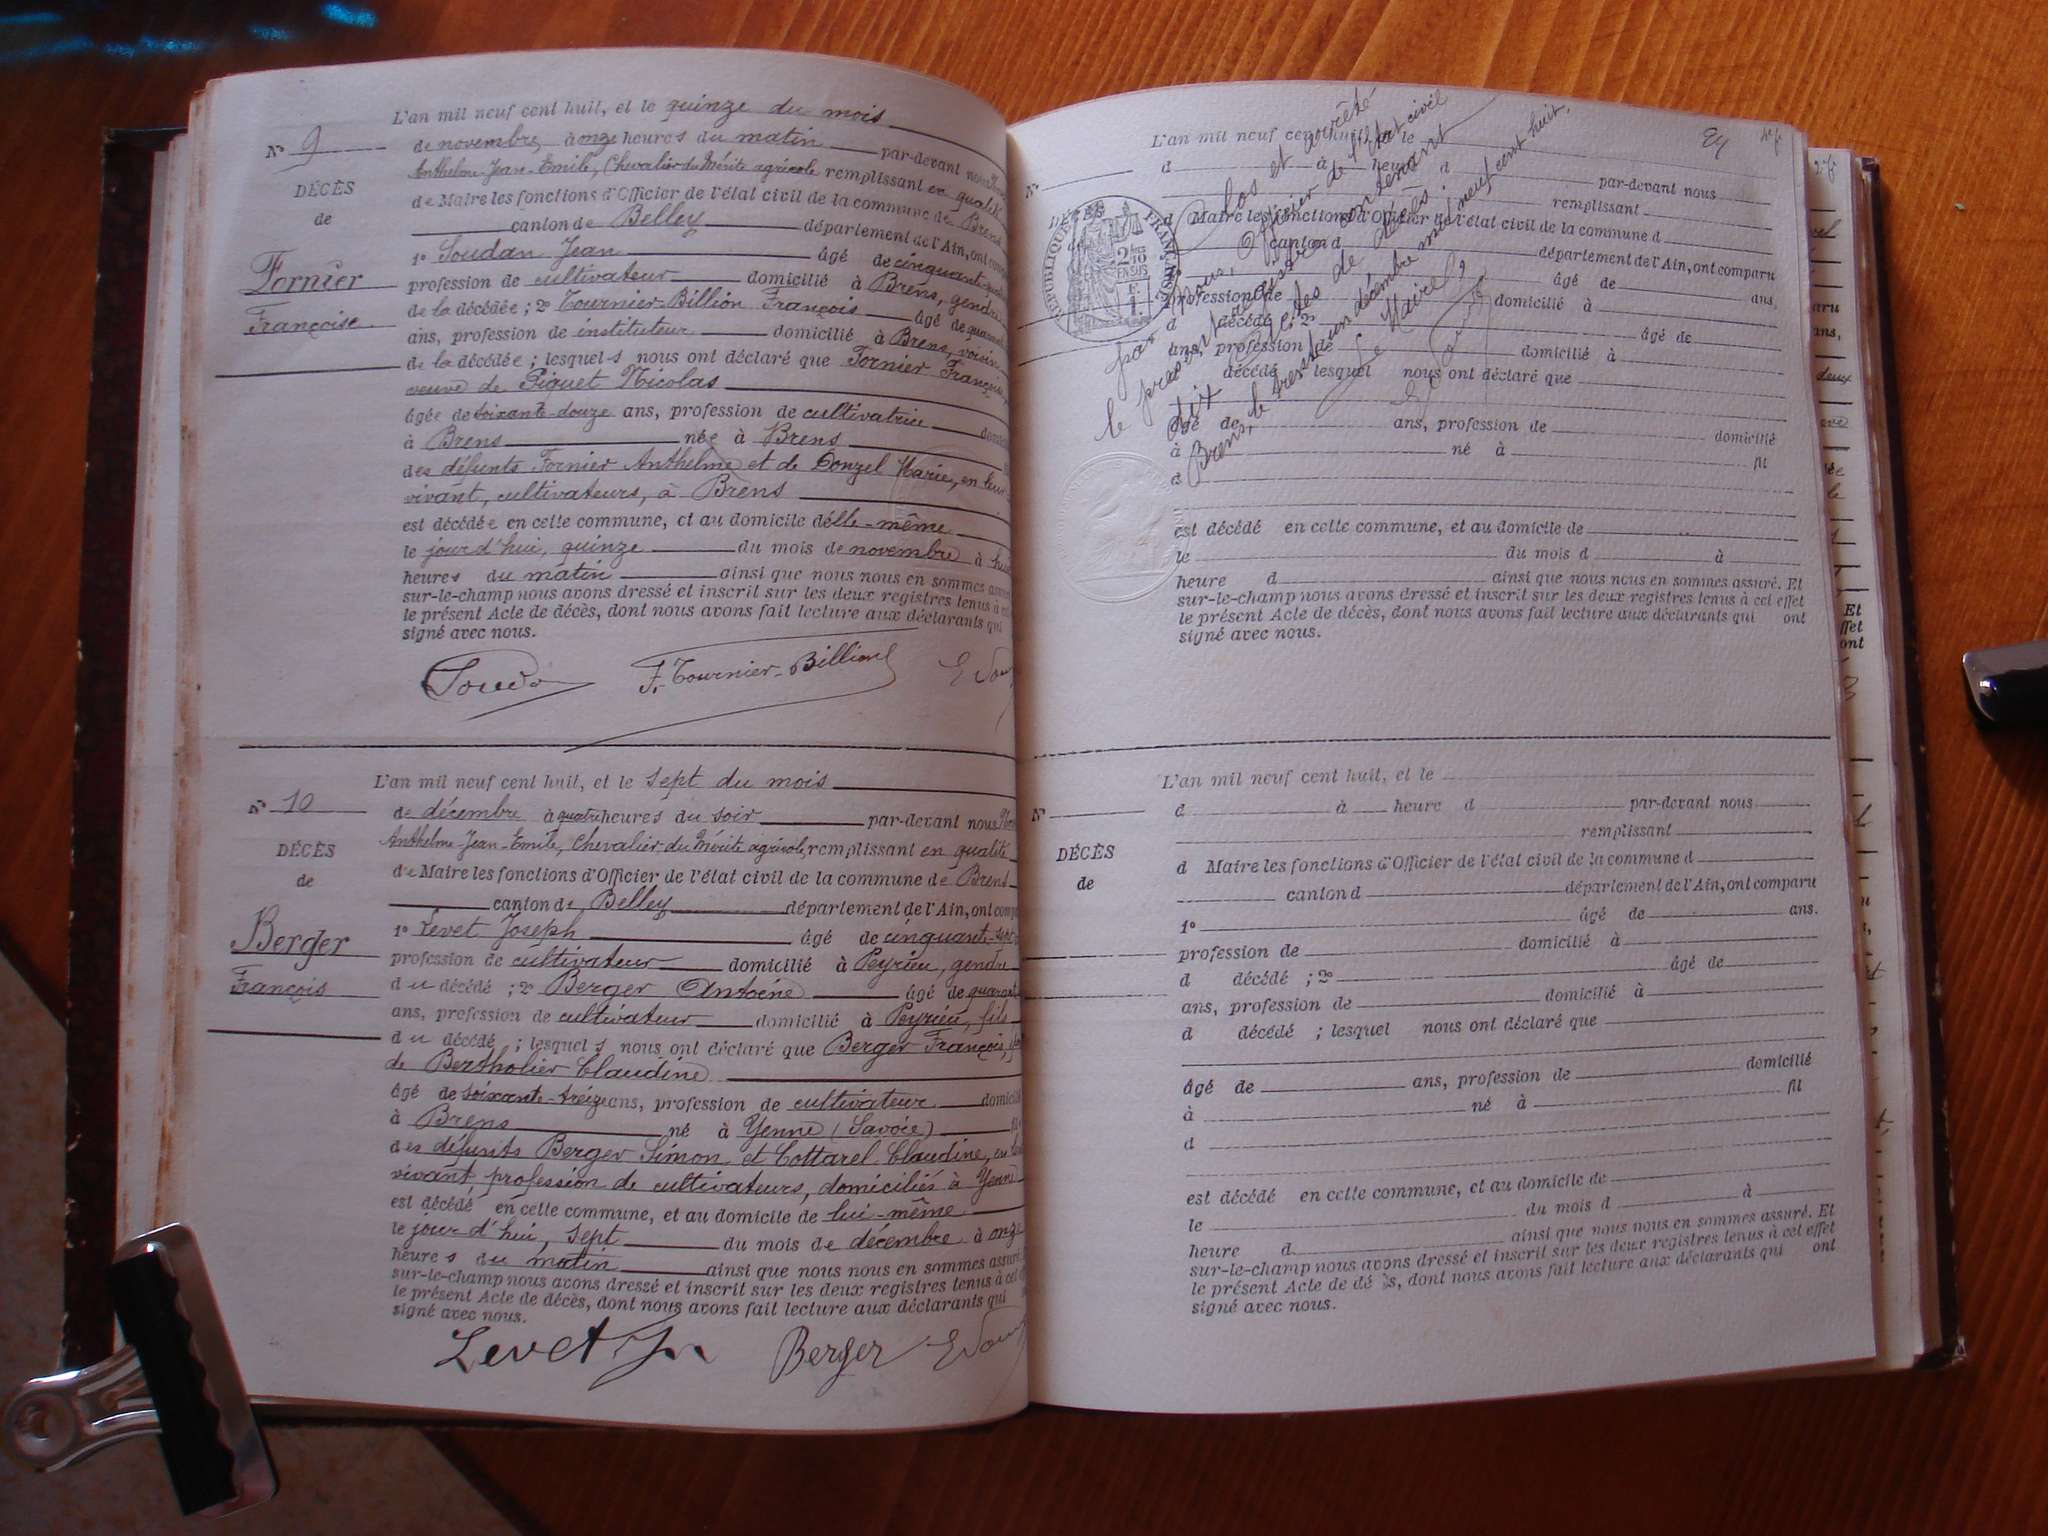 L'an mil neuf cent huit, et le quinze du mois
N° 9
de novembre à onze heures du matin par-devant nous
Anthelme-Jean-Emile, Chevalier du Mérite agricole remplissant en qualité
DÉCÈS
de Maire les fonctions d'Officier de l'état civil de la commune de Brens
de
canton de Belley département de l'Ain, ont
1° Soudan Jean âgé de cinquante-
Fornier
profession de cultivateur domicilié à Brens, gendre
Françoise
de la décédée ; 2° Tournier-Billion François âgé de
ans, profession de instituteur domicilié à Brens, voisin
de la décédée ; lesquels nous ont déclaré que Fornier Françoise
veuve de Piquet Nicolas
âgée de soixante-douze ans, profession de cultivatrice
à Brens née à Brens
des défunts Fornier Anthelme et de Donzel Marie, en leur
vivant, cultivateurs, à Brens
est décédée en cette commune, et au domicile d'elle-même
le jour d'hui, quinze du mois de novembre à
heures du matin ainsi que nous nous en sommes
sur-le-champ nous avons dressé et inscrit sur les deux registres tenus à cet
le présent Acte de décès, dont nous avons fait lecture aux déclarants qui
signé avec nous.
F. Tournier-Billion
L'an mil neuf cent huit, et le sept du mois
N° 10
de décembre à quatre heures du soir par-devant nous
Anthelme-Jean-Emile, Chevalier du Mérite agricole, remplissant en qualité
DÉCÈS
de Maire les fonctions d'Officier de l'état civil de la commune de Brens
de
canton de Belley département de l'Ain, ont
1° Levet Joseph âgé de cinquante-sept
Berger
profession de cultivateur domicilié à Peyrieu, gendre
François
du décédé ; 2° Berger Antoine âgé de
ans, profession de cultivateur domicilié à Peyrieu, fils
du décédé ; lesquels nous ont déclaré que Berger François,
de Bertholier Claudine
âgé de soixante-treize ans, profession de cultivateur
à Brens né à Yenne (Savoie)
des défunts Berger Simon et Cottarel Claudine, en
vivant profession de cultivateurs, domiciliés à Yenne
est décédé en cette commune, et au domicile de lui-même
le jour d'hui, sept du mois de décembre à onze
heures du matin ainsi que nous nous en sommes assuré.
sur-le-champ nous avons dressé et inscrit sur les deux registres tenus à cet
le présent Acte de décès, dont nous avons fait lecture aux déclarants qui
signé avec nous.
Levet Berger
L'an mil neuf cent huit, et le
N°
d à heure d par-devant nous
remplissant
DÉCÈS
d Maire les fonctions d'Officier de l'état civil de la commune d
canton d département de l'Ain, ont comparu
âgé de ans,
profession de domicilié à
d décédé ; 2° âgé de
ans, profession de domicilié à
décédé lesquel nous ont déclaré que
âgé de ans, profession de domicilié
à né à fil
d
est décédé en cette commune, et au domicile de
le du mois d à
heure d ainsi que nous nous en sommes assuré. Et
sur-le-champ nous avons dressé et inscrit sur les deux registres tenus à cet effet
le présent Acte de décès, dont nous avons fait lecture aux déclarants qui ont
signé avec nous.
Clos et arrêté
par nous, Officier de l'état civil
le présent registre contenant
dix actes de décès.
Brens, le trente-un décembre mil neuf cent huit.
Le Maire,
RÉPUBLIQUE FRANÇAISE
L'an mil neuf cent huit, et le
N°
d à heure d par-devant nous
remplissant
DÉCÈS
d Maire les fonctions d'Officier de l'état civil de la commune d
de
canton d département de l'Ain, ont comparu
1° âgé de ans.
profession de domicilié à
d décédé ; 2° âgé de
ans, profession de domicilié à
d décédé ; lesquel nous ont déclaré que
âgé de ans, profession de domicilié
à né à fil
d
est décédé en cette commune, et au domicile de
le du mois d à
heure d ainsi que nous nous en sommes assuré. Et
sur-le-champ nous avons dressé et inscrit sur les deux registres tenus à cet effet
le présent Acte de dé ès, dont nous avons fait lecture aux déclarants qui ont
signé avec nous.